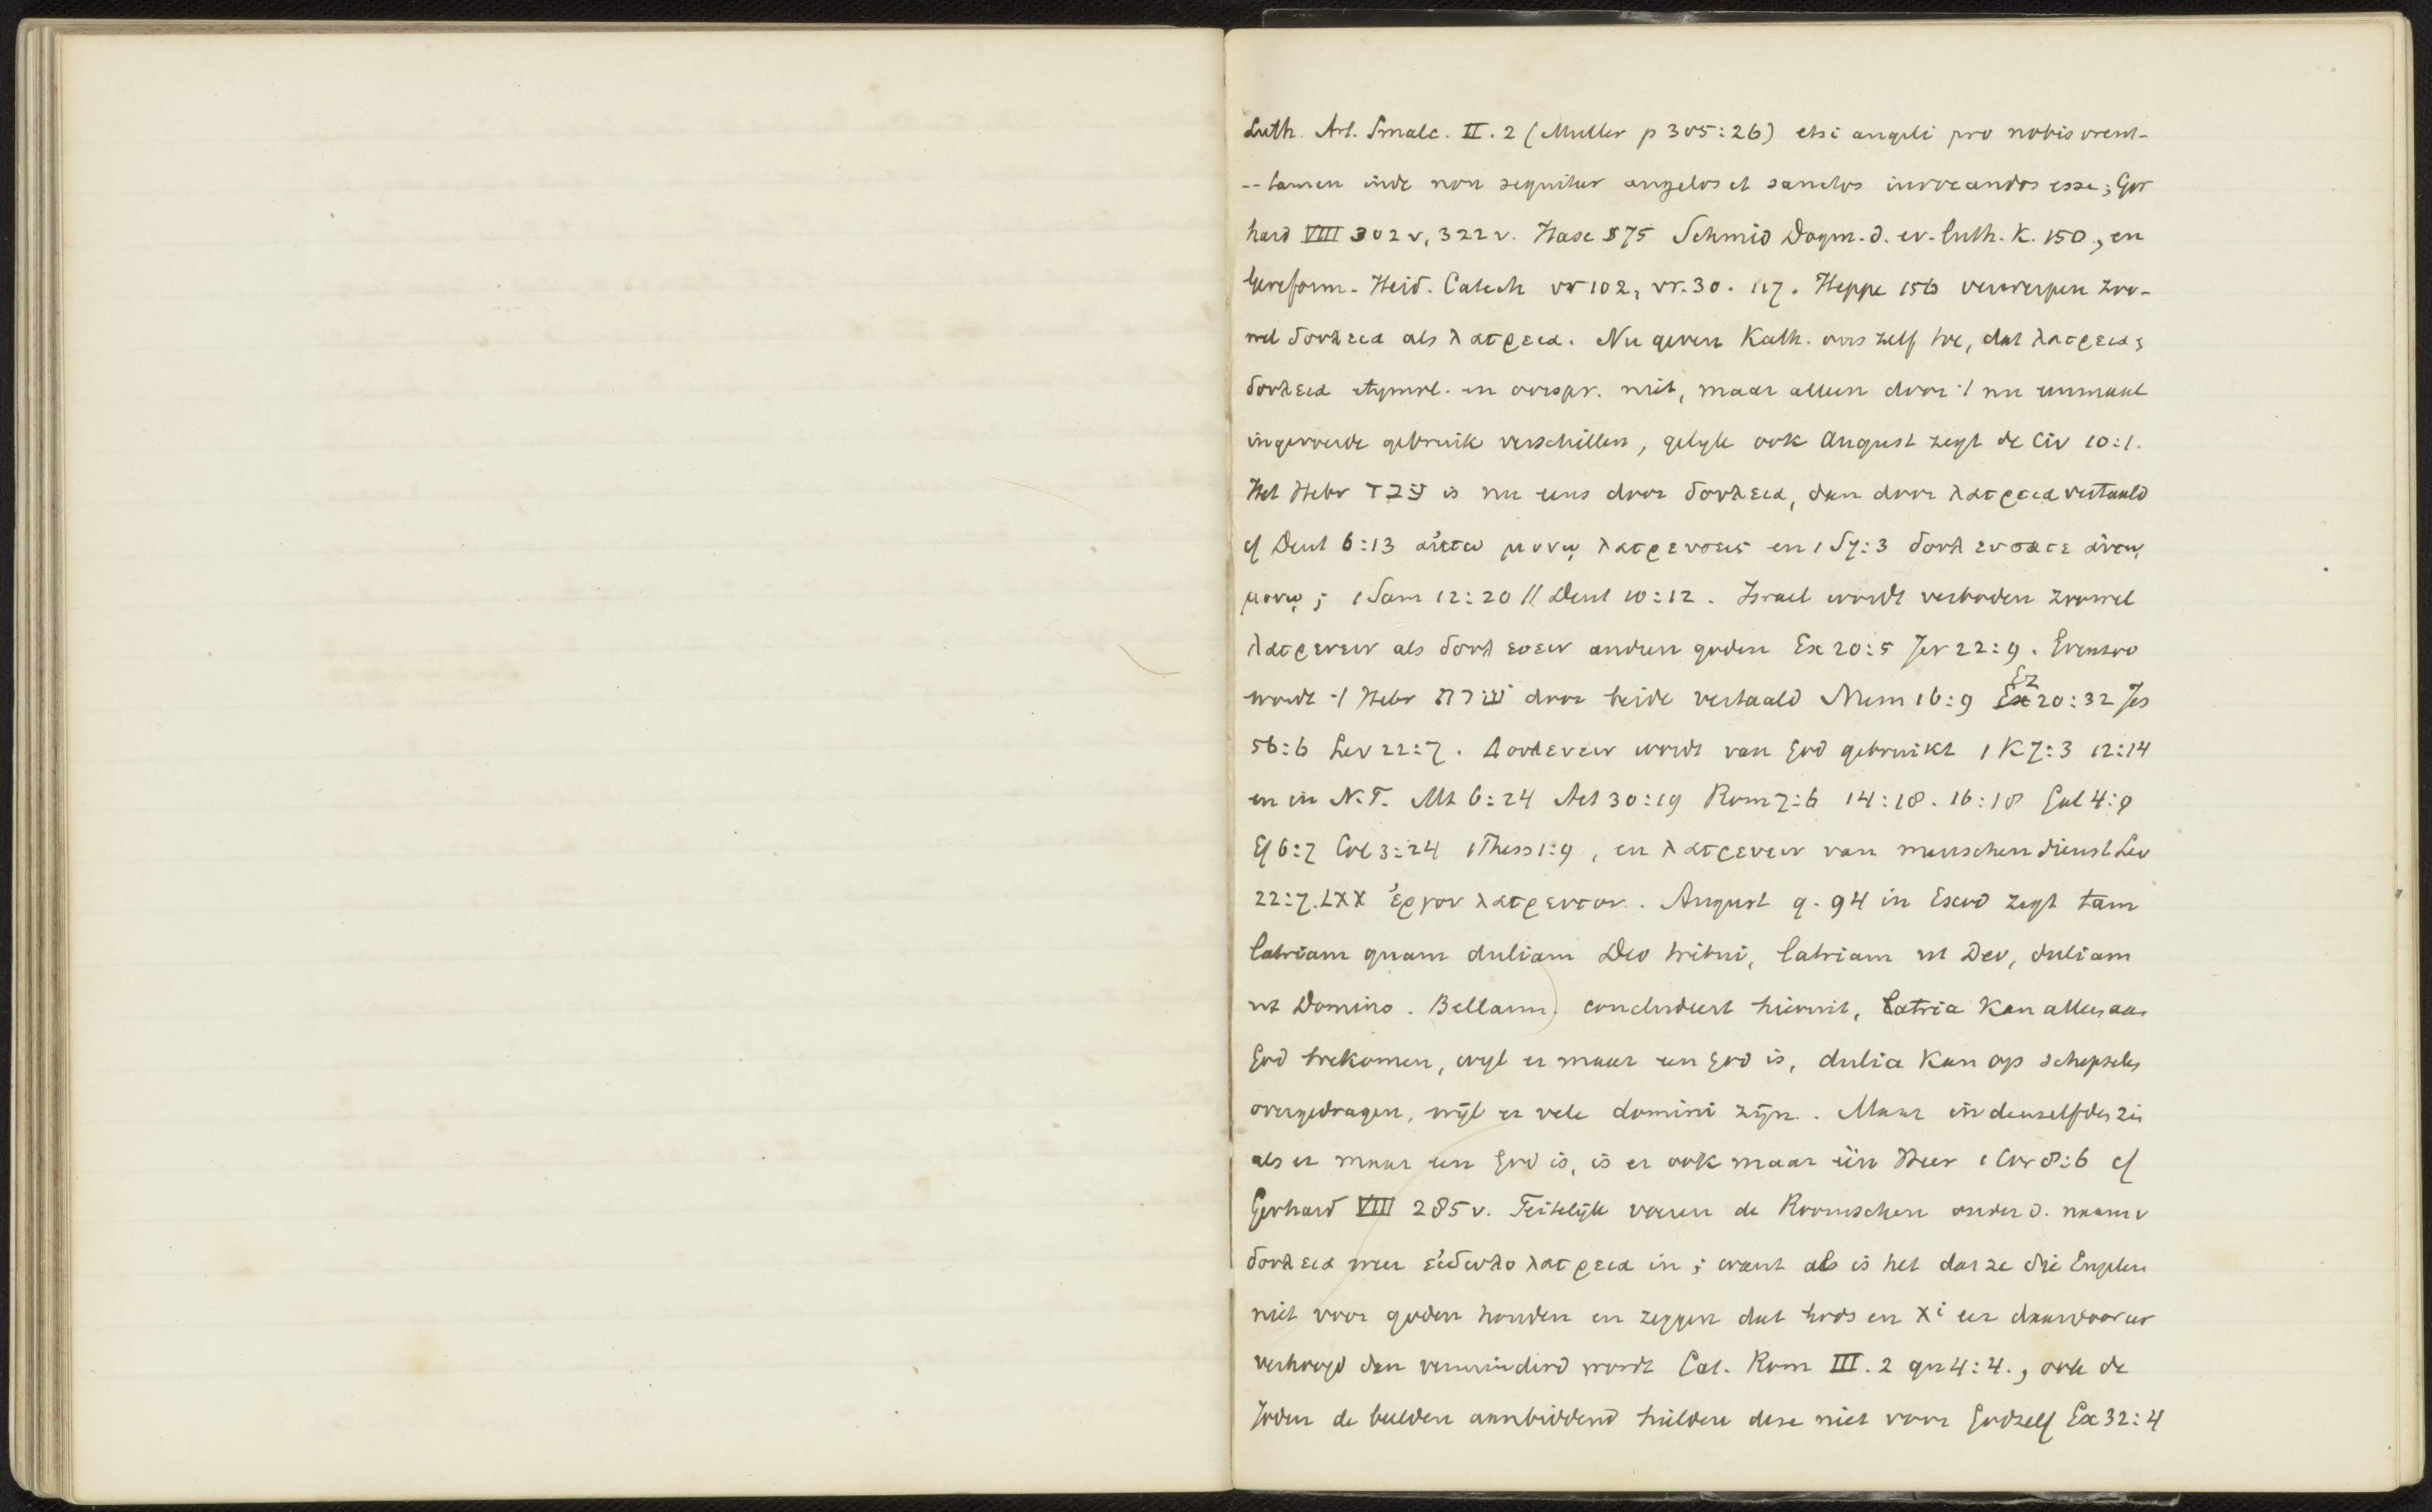 Luth. Art. Smalc. II. 2 (Muller p 305:26) etsi angeli pro nobis orent -
-- tamen inde non sequitur angelos et sanctos invocandos esse; Ger
hard VIII 302 v, 322 v. Hase 875 Schmid Dogm. d. ev. luth. K. 150., en
Gereform. Heid. Catech vr 102, vr. 30. 117. Heppe 156 verwerpen zoo-
wel δουλεια als λατρεια. Nu geven Kath. ons zelf toe, dat λατρεια;
δουλεια etymol. en oorspr. niet, maar alleen door 't nu eenmaal
ingevoerde gebruik verschillen, gelijk ook August zegt de Civ 10:1.
Het Hebr עבד is nu eens door δουλεια, dan door λατρεια vertaald
cf Deut 6:13 αὐτω μονῳ λατρευσεις en 1 S 7:3 δουλευσατε αὐτῳ
μονῳ; 1 Sam 12:20 // Deut 10:12. Israel wordt verboden zoowel
λατρευειν als δουλευειν anderen goden Ex 20:5 Jer 22:9. Evenzoo
wordt 't Hebr שרת door beide vertaald Num 16:9 Ez 20:32 Jes
56:6 Lev 22:7. Δουλευειν wordt van God gebruikt 1 K 7:3 12:14
en in N.T. Mt 6:24 Act 30:19 Rom 7:6 14:18. 16:18 Gal 4:9
Ef 6:7 Col 3:24 1 Thess 1:9, en λατρευειν van menschendienst Lev
22:7. LXX ἐργον λατρευτον. August q. 94 in Exod zegt tam
latriam quam duliam Deo tribui, latriam ut Deo, duliam
ut Domino. Bellarm. concludeert hieruit, Latria kan alleen aan
God toekomen, wijl er maar een God is, dulia kan op schepselen
overgedragen, wijl er vele domini zijn. Maar in denzelfden zin
als er maar een God is, is er ook maar één Heer 1 Cor 8:6 cf
Gerhard VIII 285 v. Feitelijk voeren de Roomschen onder d. naam v
δουλεια weer εἰδωλολατρεια in; want al is het dat ze die Engelen
niet voor goden houden en zeggen dat Gods en Xi eer daardoor eer
verhoogd dan verminderd wordt Cat. Rom III. 2 qu 4:4., ook de
Joden de beelden aanbiddend hielden deze niet voor God zelf Ex 32:4